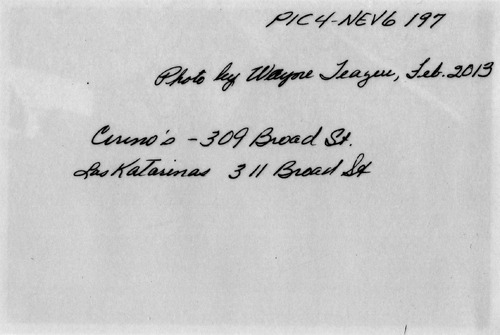 PIC4-NEV6 197
Photo by Wayne Teague, Feb. 2013
Cirino's - 309 Broad St.
Las Katarinas 311 Broad St